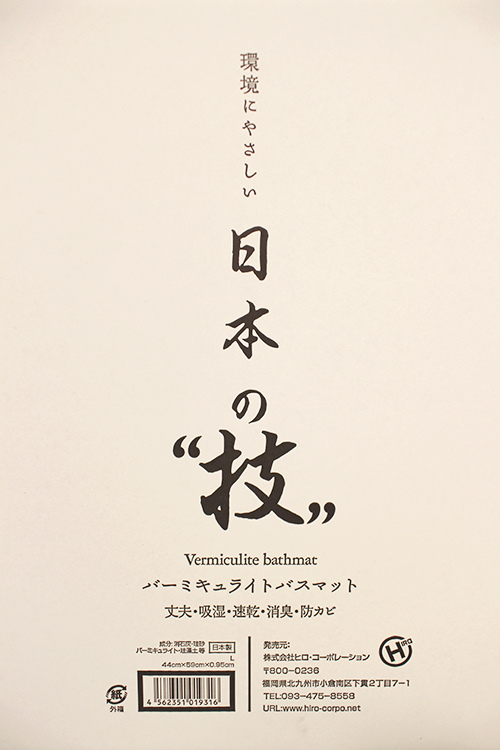 環境にやさしい
日本の
“技”
Vermiculite bathmat
バーミキュライトバスマット
丈夫・吸湿・速乾・消臭・防カビ
成分:消石灰・珪砂
バーミキュライト・珪藻土 等
日本製
L
44cm×59cm×0.95cm
紙
外箱
4 562351 019316
発売元:
株式会社ヒロ・コーポレーション
〒800-0236
福岡県北九州市小倉南区下貫2丁目7-1
TEL:093-475-8558
URL:www.hiro-corpo.net
HIRO